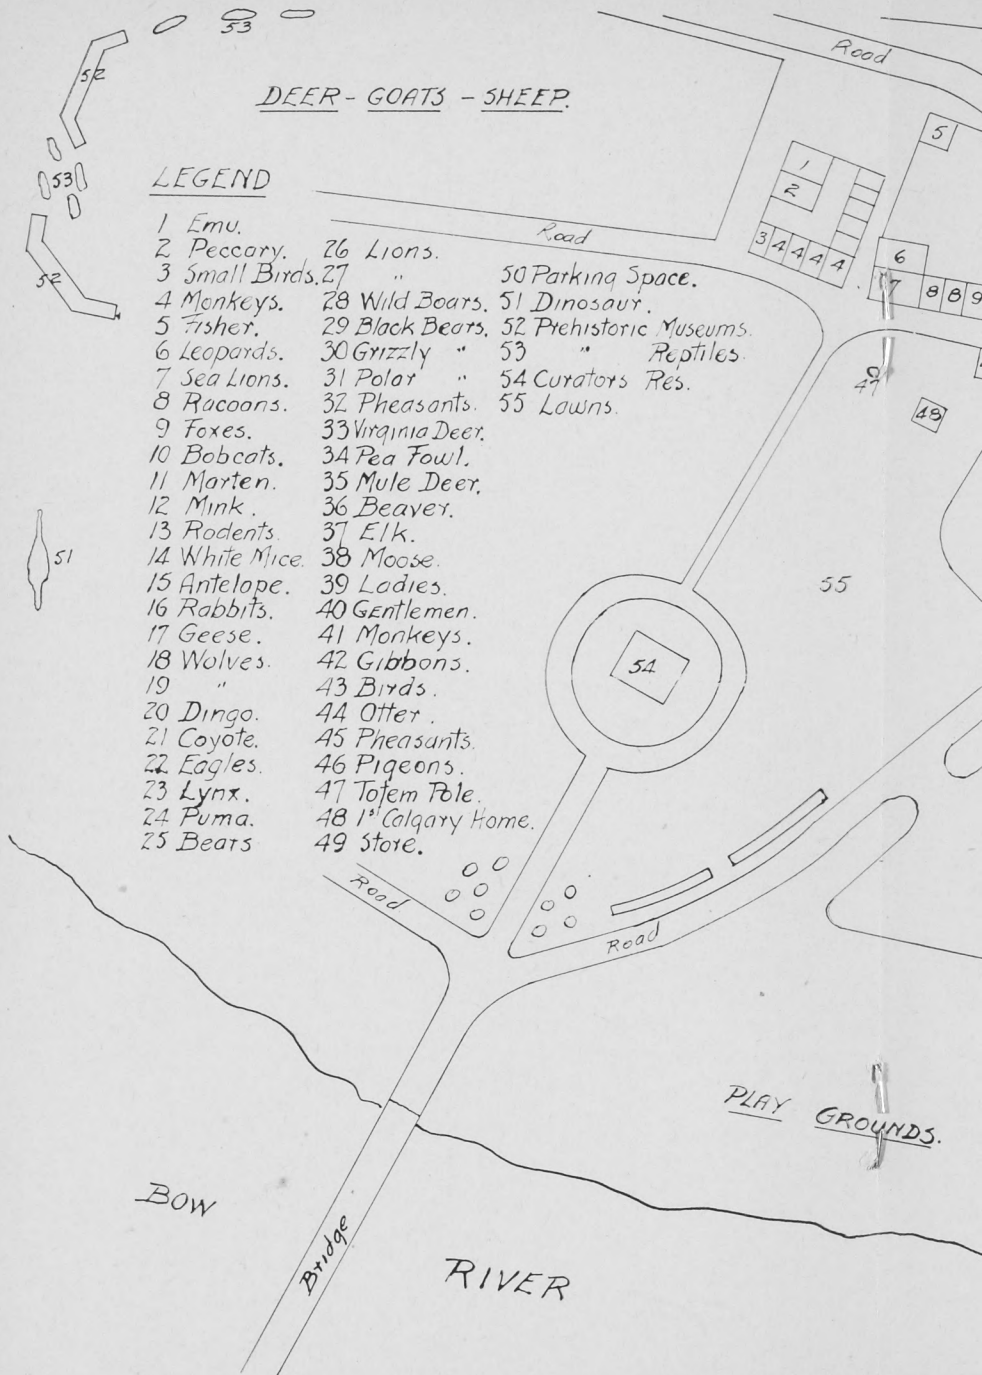 53
Road
52
DEER - GOATS - SHEEP.
5
1
2
53
LEGEND
Road
3 4 4 4 4
6
7 8 8 9
52
1 Emu.
2 Peccary.
3 Small Birds.
4 Monkeys.
5 Fisher.
6 Leopards.
7 Sea Lions.
8 Racoons.
9 Foxes.
10 Bobcats.
11 Marten.
12 Mink.
13 Rodents.
14 White Mice.
15 Antelope.
16 Rabbits.
17 Geese.
18 Wolves.
19 "
20 Dingo.
21 Coyote.
22 Eagles.
23 Lynx.
24 Puma.
25 Bears
26 Lions.
27 "
28 Wild Boars.
29 Black Bears.
30 Grizzly "
31 Polar "
32 Pheasants.
33 Virginia Deer.
34 Pea Fowl.
35 Mule Deer.
36 Beaver.
37 Elk.
38 Moose.
39 Ladies.
40 Gentlemen.
41 Monkeys.
42 Gibbons.
43 Birds.
44 Otter.
45 Pheasants.
46 Pigeons.
47 Totem Pole.
48 1st Calgary Home.
49 Store.
50 Parking Space.
51 Dinosaur.
52 Prehistoric Museums.
53 " Reptiles.
54 Curators Res.
55 Lawns.
47
48
51
55
54
Road
Road
PLAY GROUNDS.
BOW
Bridge
RIVER